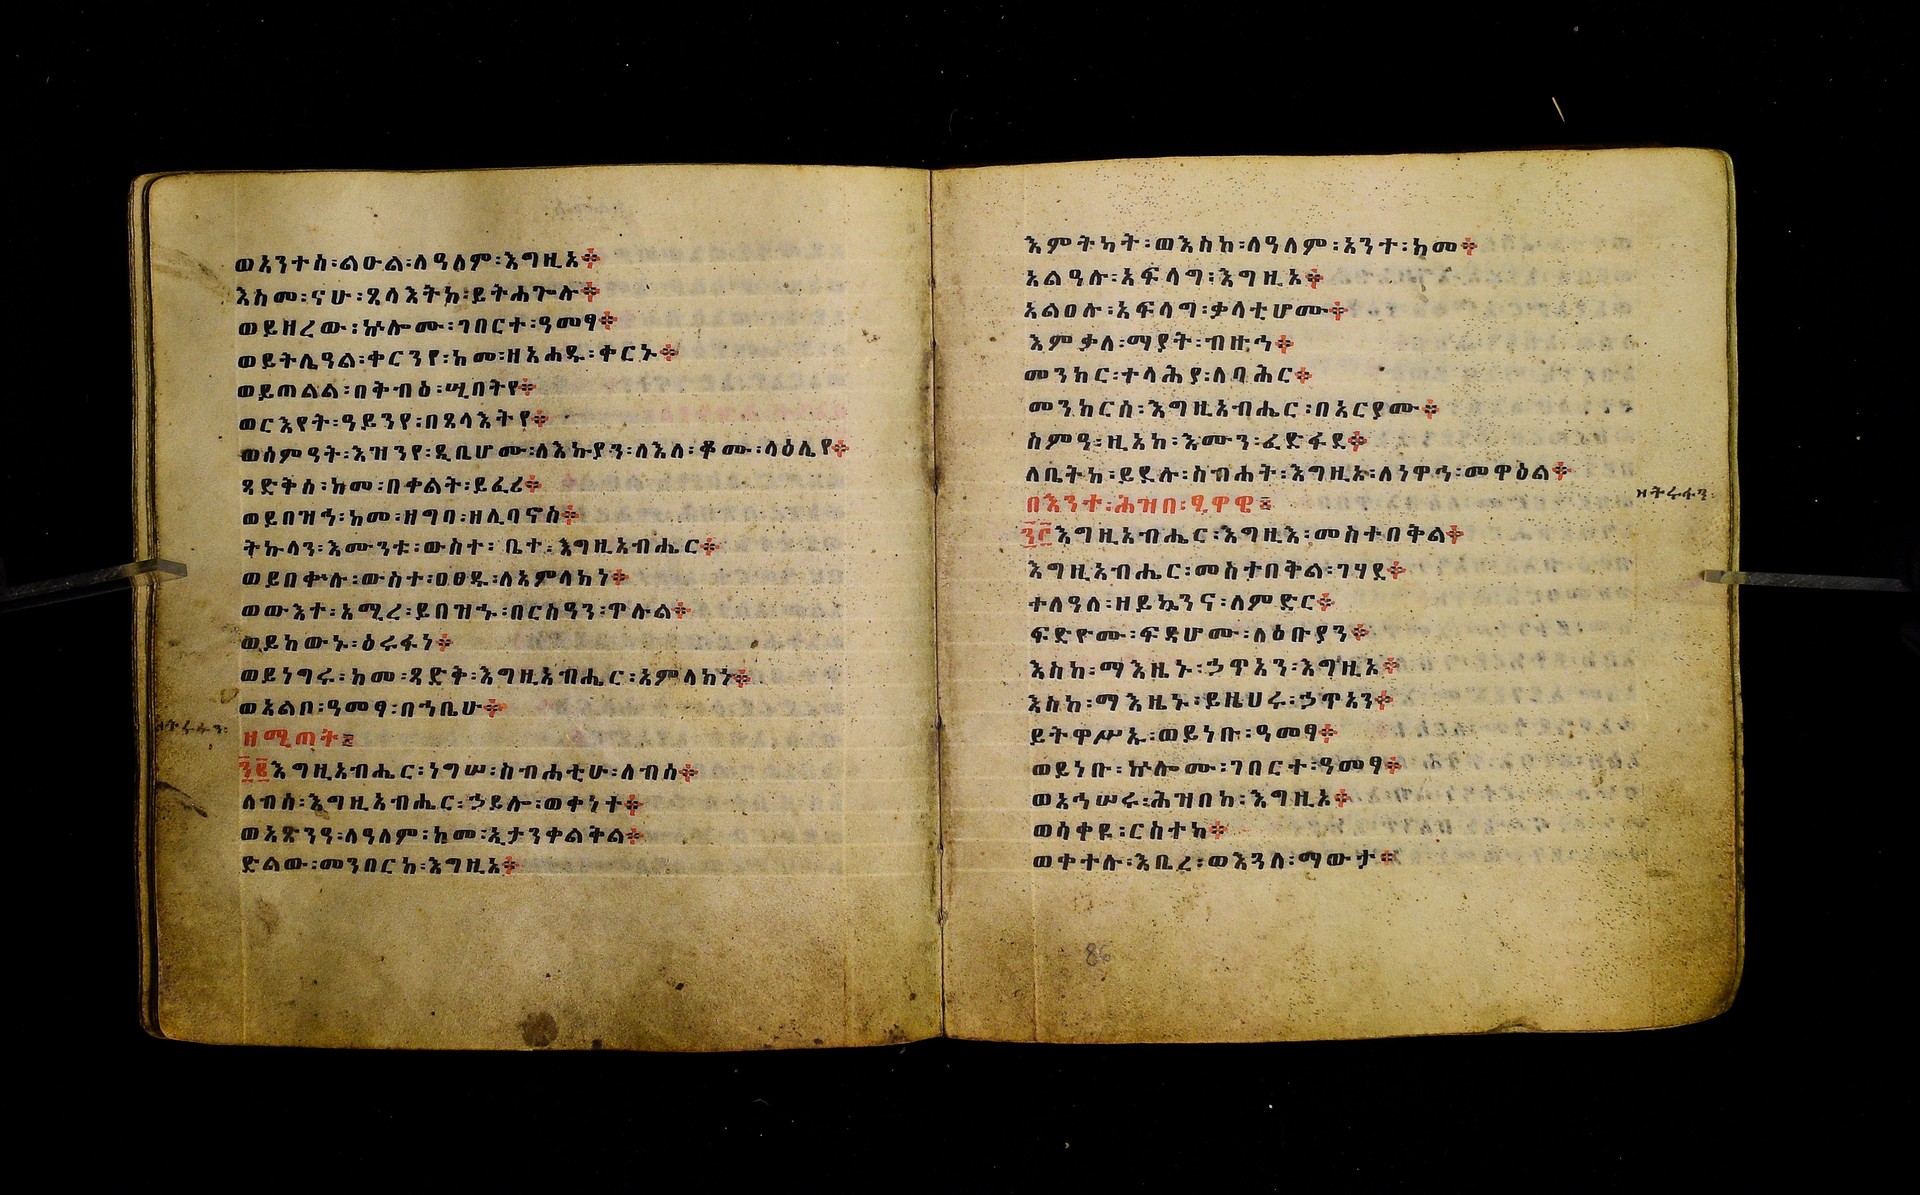 ወአንተሰ፡ልዑል፡ለዓለም፡እግዚአ።
እስመ፡ናሁ፡ጸላእትከ፡ይትሐጐሉ።
ወይዘረው፡ኵሎሙ፡ገበርተ፡ዓመፃ።
ወይትሌዓል፡ቀርንየ፡ከመ፡ዘአሐዱ፡ቀርኑ።
ወይጠልል፡በቅብዕ፡ሢበትየ።
ወርእየት፡ዓይንየ፡በጸላእትየ።
ወሰምዓት፡እዝንየ፡ዲቢሆሙ፡ለእኩያን፡ለእለ፡ቆሙ፡ላዕሌየ።
ጻድቅሰ፡ከመ፡በቀልት፡ይፈሪ።
ወይበዝኅ፡ከመ፡ዘግባ፡ዘሊባኖስ።
ትኩላን፡እሙንቱ፡ውስተ፡ቤተ፡እግዚአብሔር።
ወይበቍሉ፡ውስተ፡ዐፀዱ፡ለአምላክነ።
ወውእተ፡አሚረ፡ይበዝኁ፡በርስዓን፡ጥሉል።
ወይከውኑ፡ዕሩፋነ።
ወይነግሩ፡ከመ፡ጻድቅ፡እግዚአብሔር፡አምላክነ።
ወአልቦ፡ዓመፃ፡በኀቤሁ።
ዘትሩፋን፡
ዘሚጠት፨
፺፪እግዚአብሔር፡ነግሠ፡ስብሐቲሁ፡ለብሰ።
ለብሰ፡እግዚአብሔር፡ኃይሎ፡ወቀነተ።
ወአጽንዓ፡ለዓለም፡ከመ፡ኢታንቀልቅል።
ድልው፡መንበርከ፡እግዚአ።
እምትካት፡ወእስከ፡ለዓለም፡አንተ፡ከመ።
አልዓሉ፡አፍላግ፡እግዚአ።
አልዐሉ፡አፍላግ፡ቃላቲሆሙ።
እምቃለ፡ማያት፡ብዙኅ።
መንክር፡ተላሕያ፡ለባሕር።
መንክርሰ፡እግዚአብሔር፡በአርያሙ።
ስምዓ፡ዚአከ፡እሙን፡ፈድፋደ።
ለቤትከ፡ይደሉ፡ስብሐት፡እግዚኦ፡ለነዋኅ፡መዋዕል።
ዘትሩፋን፡
በእንተ፡ሕዝበ፡ፄዋዊ፨
፺፫እግዚአብሔር፡እግዚእ፡መስተበቅል።
እግዚአብሔር፡መስተበቅል፡ገሃደ።
ተለዓለ፡ዘይኴንና፡ለምድር።
ፍድዮሙ፡ፍዳሆሙ፡ለዕቡያን።
እስከ፡ማእዜኑ፡ኃጥአን፡እግዚአ።
እስከ፡ማእዜኑ፡ይዜሀሩ፡ኃጥአን።
ይትዋሥኡ፡ወይነቡ፡ዓመፃ።
ወይነቡ፡ኵሎሙ፡ገበርተ፡ዓመፃ።
ወአኅሠሩ፡ሕዝበከ፡እግዚአ።
ወሳቀዩ፡ርስተከ።
ወቀተሉ፡እቤረ፡ወእጓለ፡ማውታ።
86